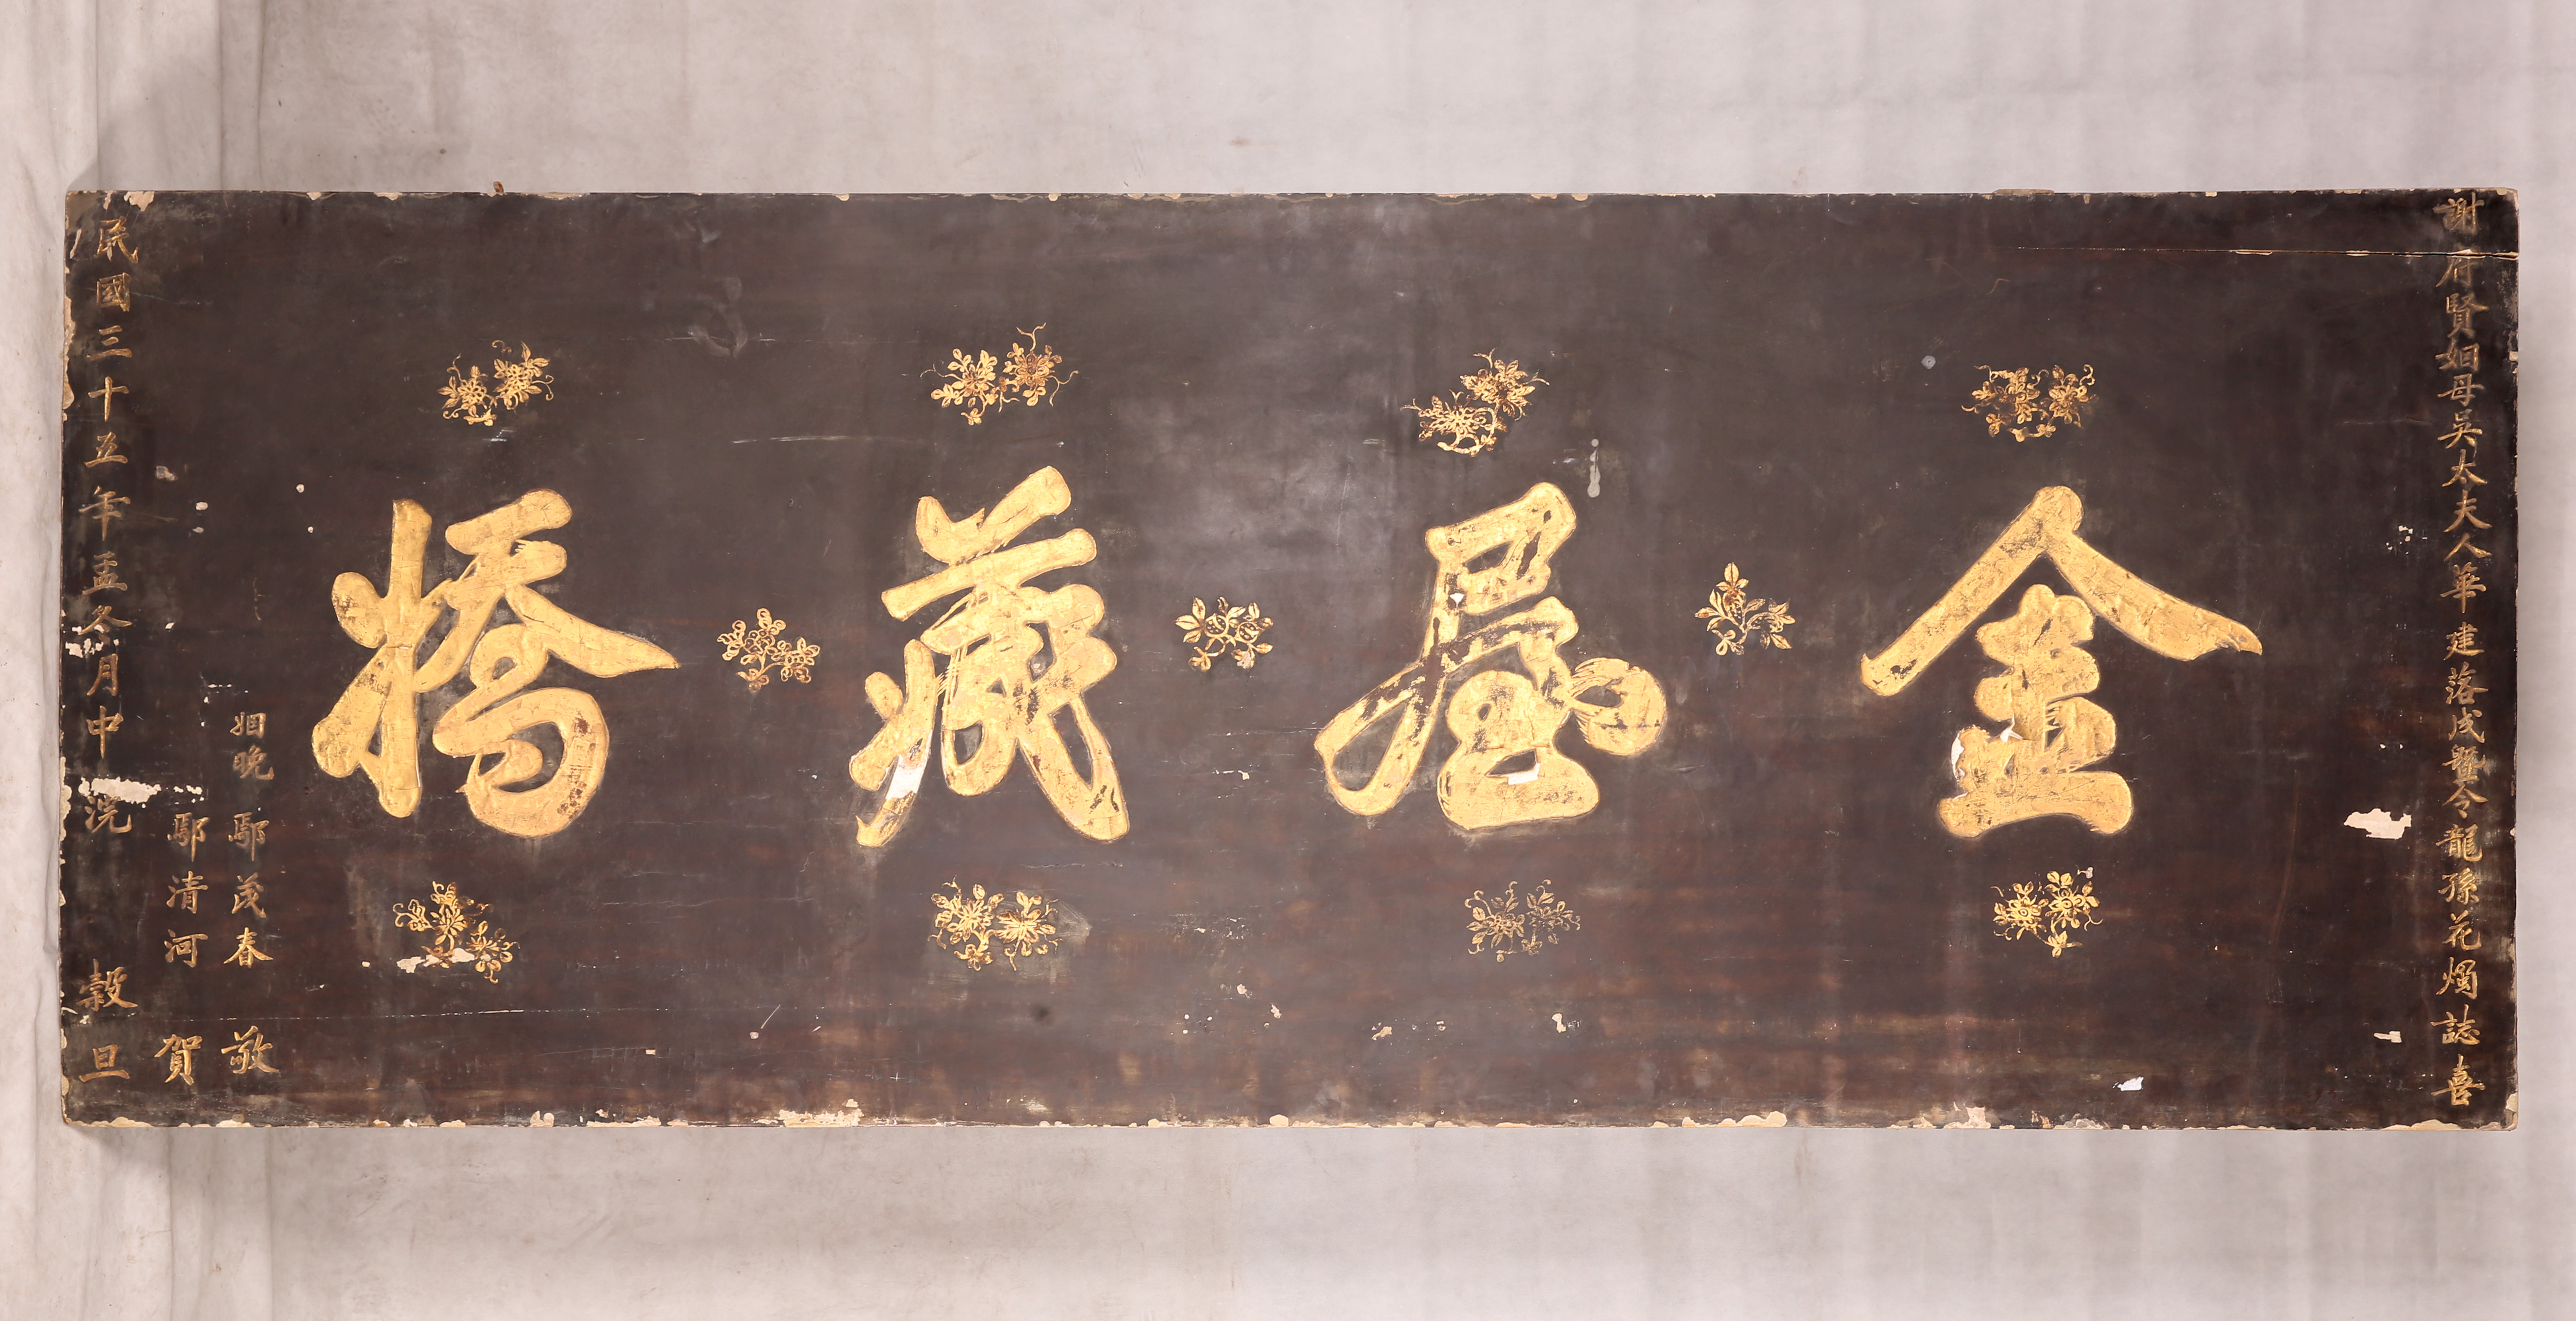 謝府賢姻母吳太夫人華建落成暨令龍孫花燭誌喜
金屋藏橋
姻晚 鄢茂春 敬
鄢清河 賀
民國三十五年孟冬月中浣 穀旦